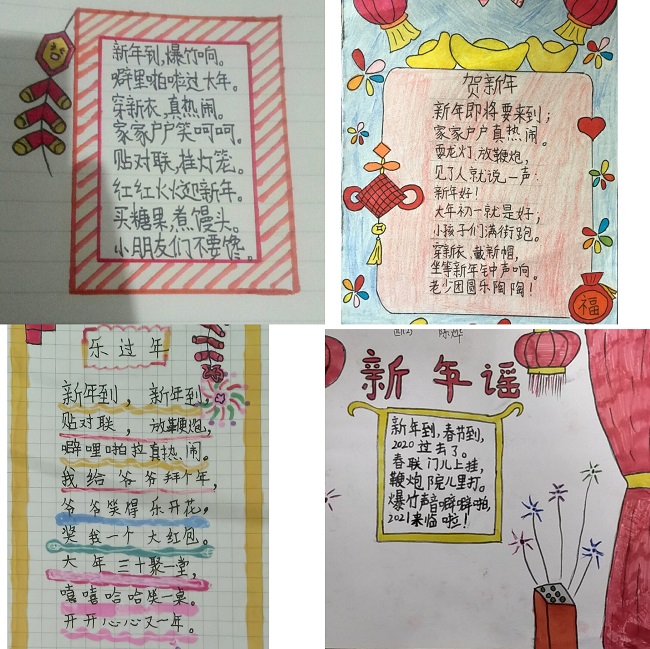 新年到,爆竹响。
噼里啪啦过大年。
穿新衣,真热闹。
家家户户笑呵呵。
贴对联,挂灯笼。
红红火火迎新年。
买糖果,煮馒头。
小朋友们不要馋。
贺新年
新年即将要来到;
家家户户真热闹。
耍龙灯、放鞭炮,
见了人就说一声:
新年好!
大年初一就是好;
小孩子们满街跑。
穿新衣、戴新帽,
坐等新年钟声响。
老少团圆乐陶陶!
福
乐过年
新年到,新年到,
贴对联,放鞭炮,
噼哩啪拉真热闹。
我给爷爷拜个年,
爷爷笑得乐开花。
奖我一个大红包。
大年三十聚一堂,
嘻嘻哈哈坐一桌。
开开心心又一年。
新年谣
新年到,春节到,
2020过去了。
春联门儿上挂,
鞭炮院儿里打。
爆竹声音噼噼啪,
2021来临啦!